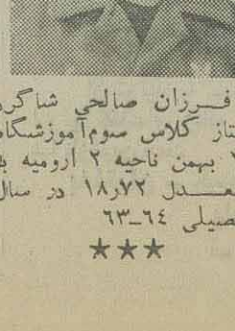 فـــرزان صالحي شاگر
تاز کلاس سوم آموزشگا
بهمن ناحیه ۲ ارومیه ب
عـــدل ۱۸ر۷۲ در سال
صیلی ٦٤ـ٦٣
★★★